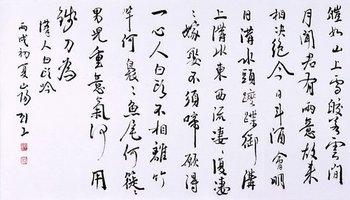 皚如山上雪皎若雲間
月聞君有兩意故來
相決絕今日斗酒會明
旦溝水頭躞蹀御溝
上溝水東西流凄凄復凄
凄嫁娶不須啼願得
一心人白頭不相離竹
竿何裊裊魚尾何簁簁
男兒重意氣何用
錢刀為
漢人白頭吟
丙戌初夏